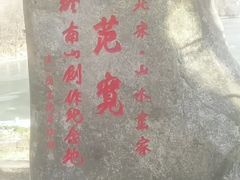 北宋·山水画家
范宽
终南山创作纪念地